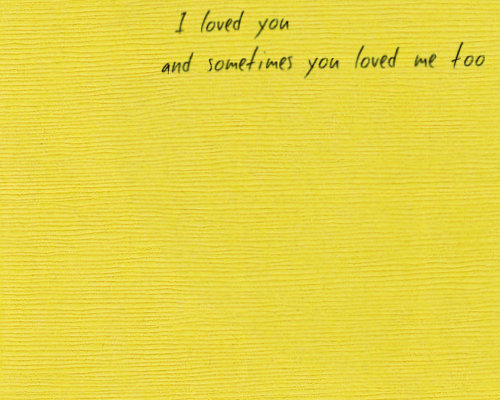 I loved you
and sometimes you loved me too